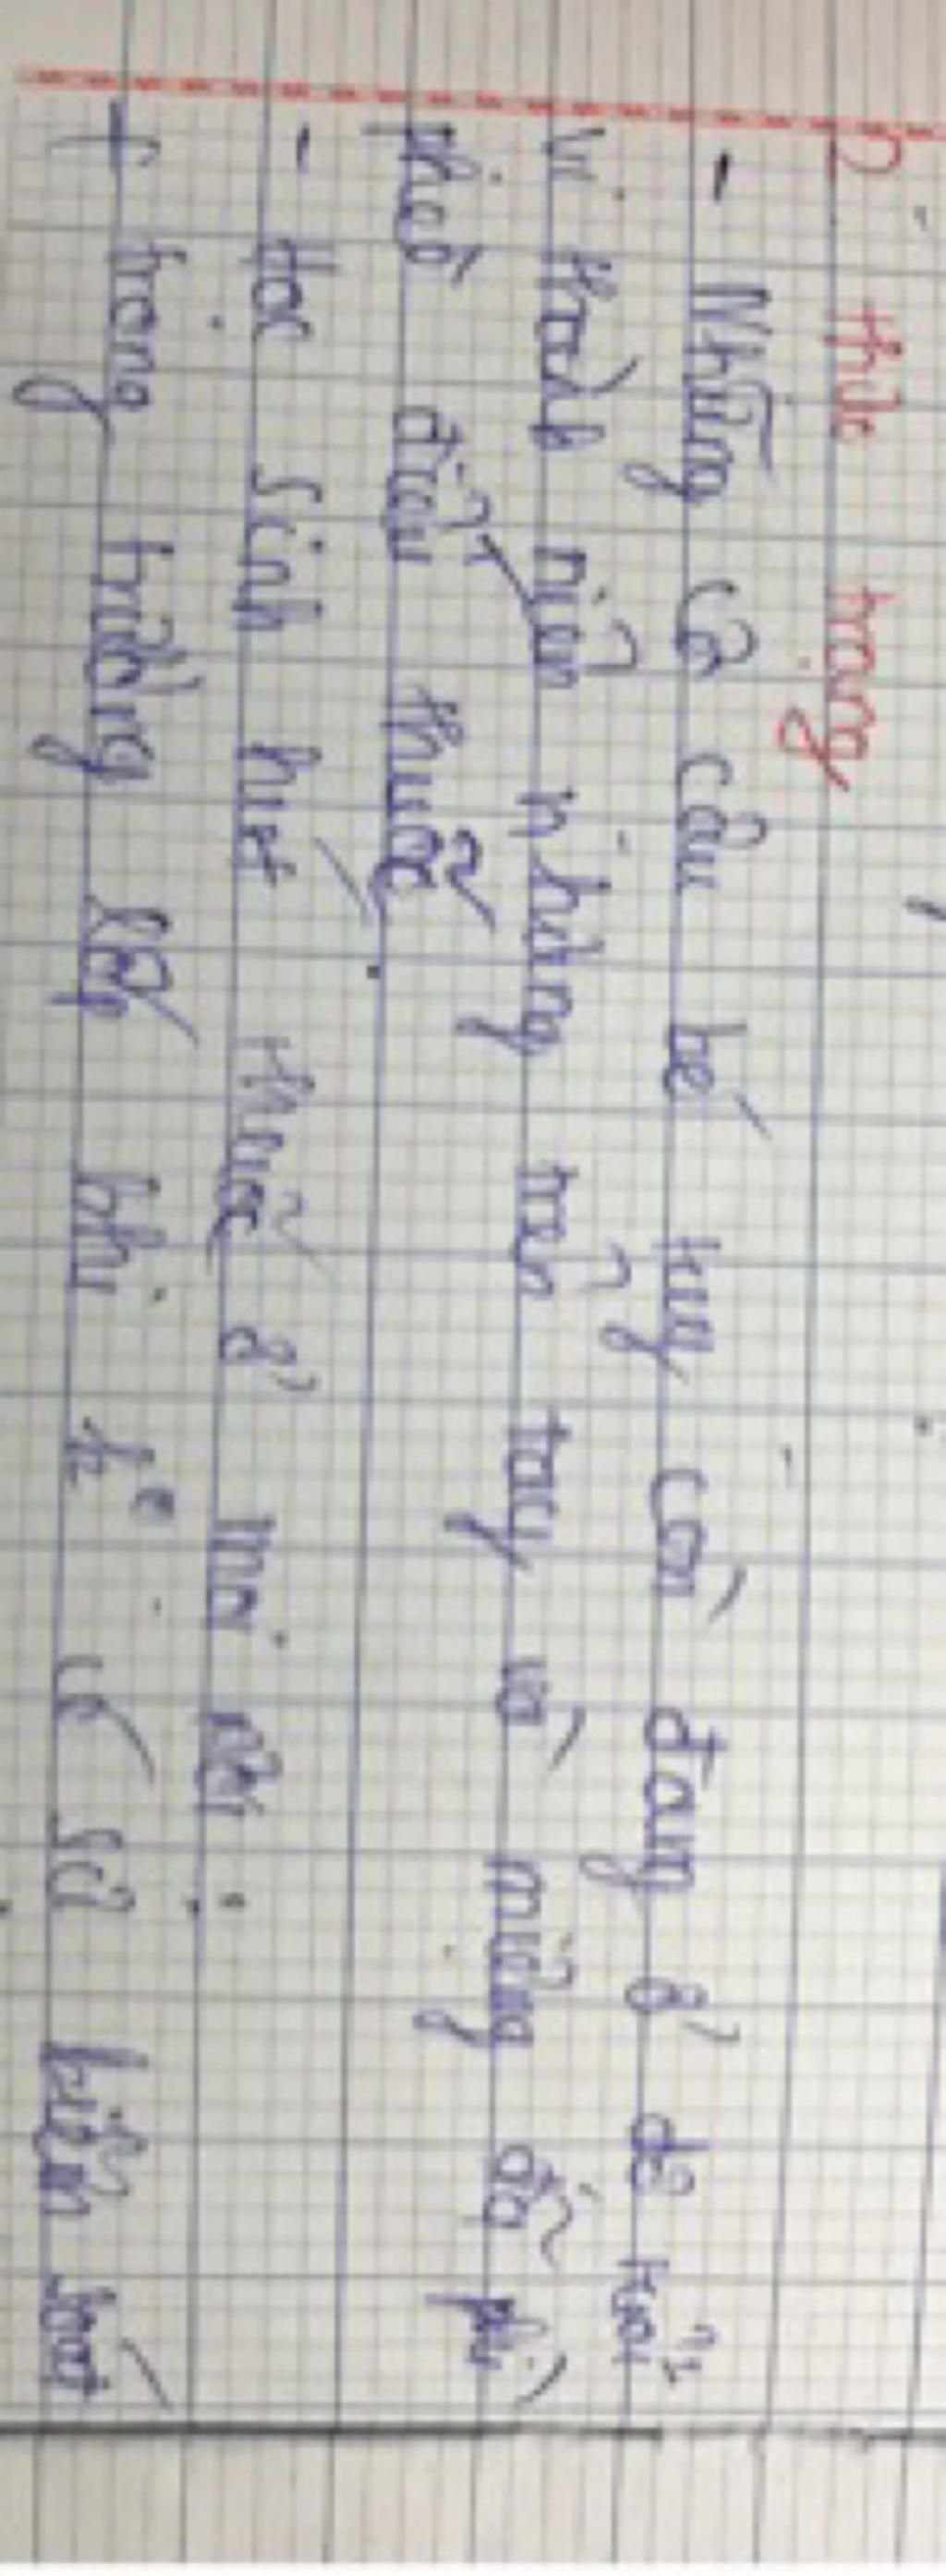 2. thực trạng
- Những cô cậu bé tuy còn đang ở độ tuổi
vị thành niên nhưng trên tay và miệng đã phì
phèo điếu thuốc.
- Học sinh hút thuốc ở mọi nơi:
+ trong trường lớp khi k° có sự kiểm soát